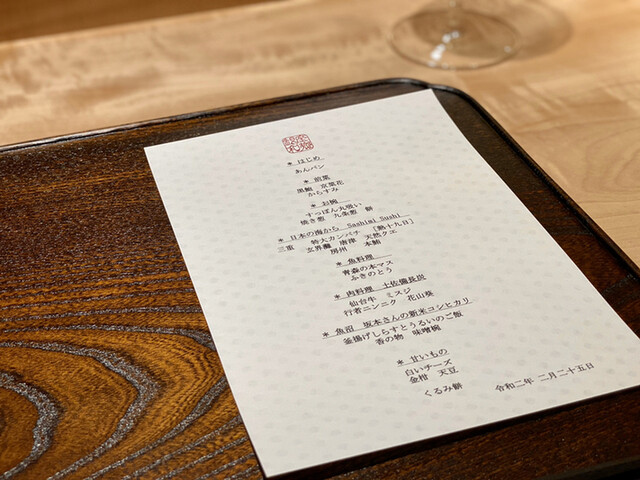 * はじめ
あんパン
* 前菜
黒鮑 京菜花
からすみ
* お椀
すっぽん丸吸い
焼き葱 九条葱 餅
* 日本の海から Sashimi Sushi
三重 特大カンパチ 「熟十九日」
玄界灘 唐津 天然クエ
房州 本鮪
* 魚料理
青森の本マス
ふきのとう
* 肉料理 土佐備長炭
仙台牛 ミスジ
行者ニンニク 花山葵
* 魚沼 坂本さんの新米コシヒカリ
釜揚げしらすとうるいのご飯
香の物 味噌椀
* 甘いもの
白いチーズ
金柑 天豆
くるみ餅
令和二年 二月二十五日